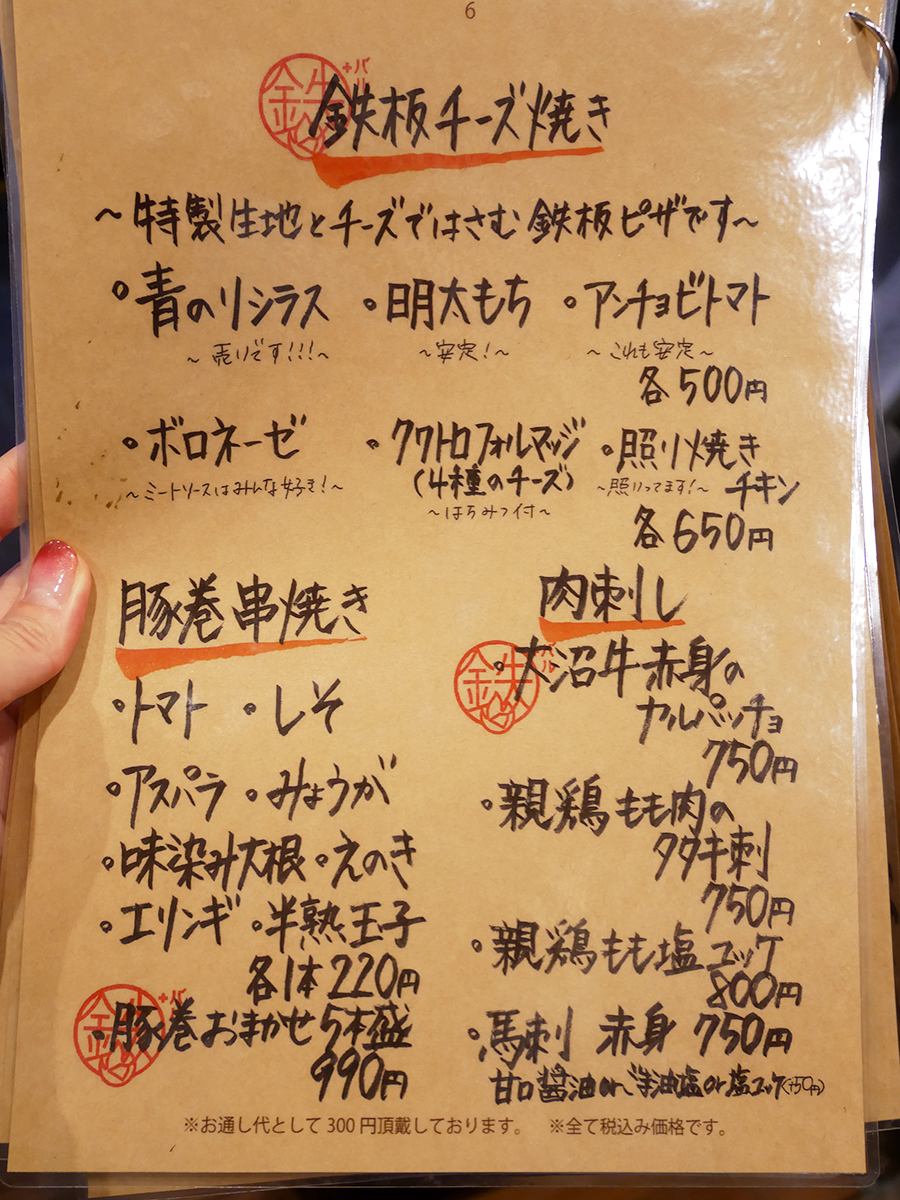 6
鉄板チーズ焼き
～特製生地とチーズではさむ鉄板ピザです～
・青のりシラス ・明太もち ・アンチョビトマト
～売りです!!!～ ～安定!～ ～これも安定～
各500円
・ボロネーゼ ・クワトロフォルマッジ ・照り焼き
(4種のチーズ) チキン
～ミートソースはみんな好き!～ ～はちみつ付～ ～照りってます!～
各650円
豚巻串焼き
・トマト ・しそ
・アスパラ ・みょうが
・味染み大根 ・えのき
・エリンギ ・半熟玉子
各1本220円
・豚巻おまかせ5本盛
990円
肉刺し
・大沼牛赤身の
カルパッチョ
750円
・親鶏もも肉の
タタキ刺
750円
・親鶏もも塩ユッケ
800円
・馬刺 赤身 750円
甘口醤油or 油塩or塩ユッケ(+50円)
※お通し代として300円頂戴しております。 ※全て税込み価格です。